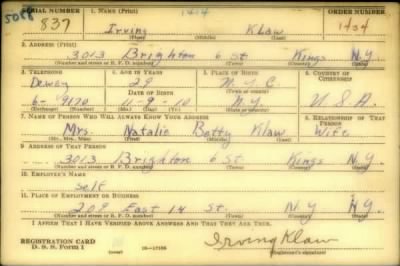 5058 SERIAL NUMBER 1. NAME (Print) 1434 ORDER NUMBER
837 Irving Klaw 1434
(First) (Middle) (Last)
2. ADDRESS (Print)
3013 Brighton 6 St Kings N.Y.
(Number and street or R. F. D. number) (Town) (County) (State)
3. TELEPHONE 4. AGE IN YEARS 5. PLACE OF BIRTH 6. COUNTRY OF CITIZENSHIP
Dewey 29 N.Y.C
DATE OF BIRTH (Town or county)
6-9170 11-9-10 N.Y. U.S.A.
(Exchange) (Number) (Mo.) (Day) (Yr.) (State or country)
7. NAME OF PERSON WHO WILL ALWAYS KNOW YOUR ADDRESS 8. RELATIONSHIP OF THAT PERSON
Mrs. Natalie Betty Klaw Wife
(Mr., Mrs., Miss) (First) (Middle) (Last)
9. ADDRESS OF THAT PERSON
3013 Brighton 6 St Kings N.Y.
(Number and street or R. F. D. number) (Town) (County) (State)
10. EMPLOYER'S NAME
Self
11. PLACE OF EMPLOYMENT OR BUSINESS
209 East 14 St. N.Y N.Y.
(Number and street or R. F. D. number) (Town) (County) (State)
I AFFIRM THAT I HAVE VERIFIED ABOVE ANSWERS AND THAT THEY ARE TRUE.
REGISTRATION CARD
D. S. S. Form 1 16-17105 Irving Klaw